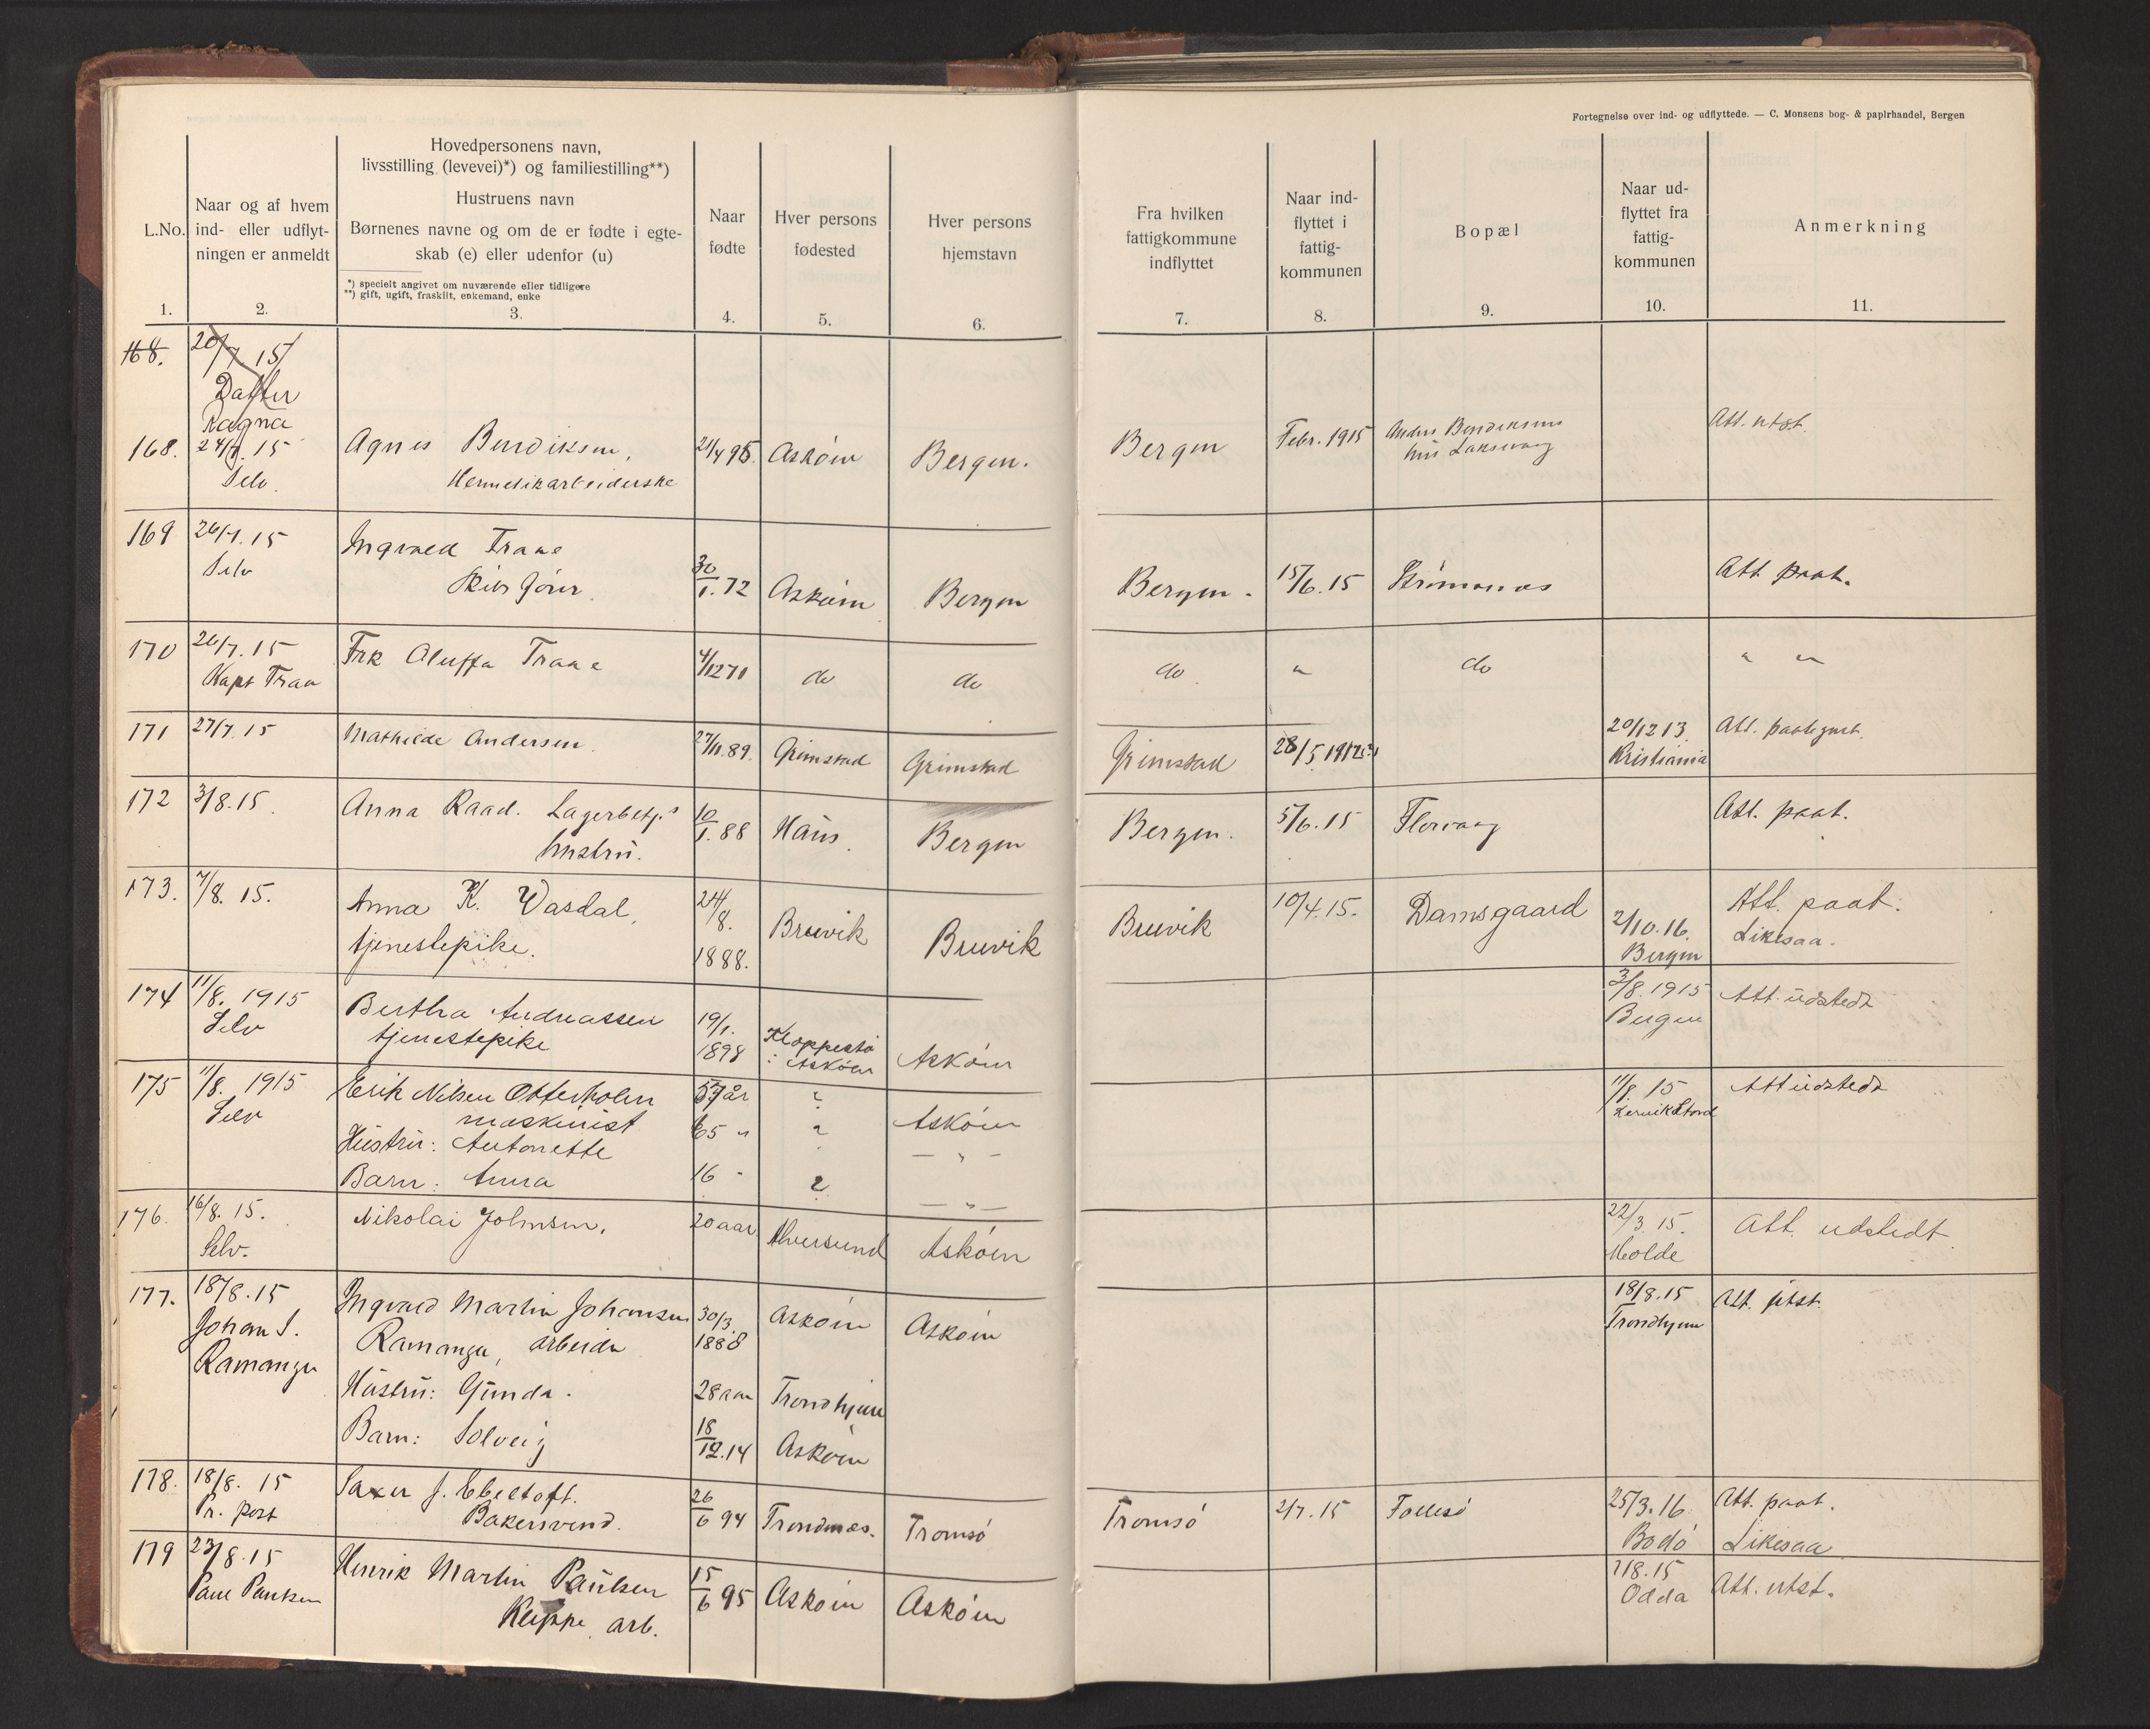 Fortegnelse over ind- og udflyttede. — C. Monsens bog- & papirhandel, Bergen
L.No.
1.
Naar og af hvem
ind- eller udflyt-
ningen er anmeldt
2.
Hovedpersonens navn,
livsstilling (levevei)*) og familiestilling**)
Hustruens navn
Børnenes navne og om de er fødte i egte-
skab (e) eller udenfor (u)
*) specielt angivet om nuværende eller tidligere
**) gift, ugift, fraskilt, enkemand, enke
3.
Naar
fødte
4.
Hver persons
fødested
5.
Hver persons
hjemstavn
6.
Fra hvilken
fattigkommune
indflyttet
7.
Naar ind-
flyttet i
fattig-
kommunen
8.
Bopæl
9.
Naar ud-
flyttet fra
fattig-
kommunen
10.
Anmerkning
11.
168. 20/7. 15
Datter
Ragna
168. 24/7. 15 Agnes Bendiksen, 21/4 95 Askøen Bergen. Bergen Febr. 1915 Anders Bendiksens Att. utst.
Selv Hermetikarbeiderske hus Laksevaag
169 26/7. 15 Ingvald Traae 30/1. 72 Askøen Bergen Bergen. 15/6. 15 Strømsnes Att. paat.
Selv Skibsfører.
170 26/7. 15 Frk Oluffa Traae 4/12 71 do do do " do " "
Kapt Traa
171 27/7. 15 Mathilde Andersen. 27/11. 89. Grimstad Grimstad Grimstad 28/5 1912 20/12 13. Att. paategnet.
Kristiania
172 3/8. 15. Anna Raad. Lagerbetj.s 10/1. 88 Haus. Bergen Bergen. 5/6. 15 Florvaag Att. paat.
hustru.
173. 7/8. 15. Anna K. Vasdal, 24/8. 1888. Bruvik Bruvik Bruvik 10/4. 15. Damsgaard 2/10. 16. Att. paat.
tjenestepike. Bergen Likesaa.
174 11/8. 1915 Bertha Andreassen 19/1. 1898 Kleppestø Askøen 3/8. 1915 Att. udstedt
Selv tjenestepike : Askøen Bergen
175 11/8. 1915 Erik Nilsen Otterholm 57 år ? Askøen 11/8. 15 Att udstedt
Selv maskinist Lervik Stord
Hustru: Antonette 65 " ? — " —
Barn: Anna 16 " ? — " —
176. 16/8. 15. Nikolai Johnsen. 20 aar Alversund Askøen 22/3. 15. Att. udstedt.
Selv. Molde
177. 18/8. 15 Ingvald Martin Johansen 30/3. 1888 Askøen Askøen 18/8. 15 Att. utst.
Johan J. Ramangen, arbeider Trondhjem
Ramangen Hustru: Gunda. 28 aar Trondhjem
Barn: Solveig 18/12. 14 Askøen
178. 18/8. 15 Saxer J. Ebeltoft. 26/6 94 Trondenæs. Tromsø Tromsø 2/7. 15 Follesø 25/3. 16. Att. paat.
Pr. post Bakersvend. Bodø Likesaa
179 23/8. 15 Henrik Martin Paulsen 15/6 95 Askøen Askøen 18. 15 Att. utst.
Paul Paulsen Kleppe, arb. Odda